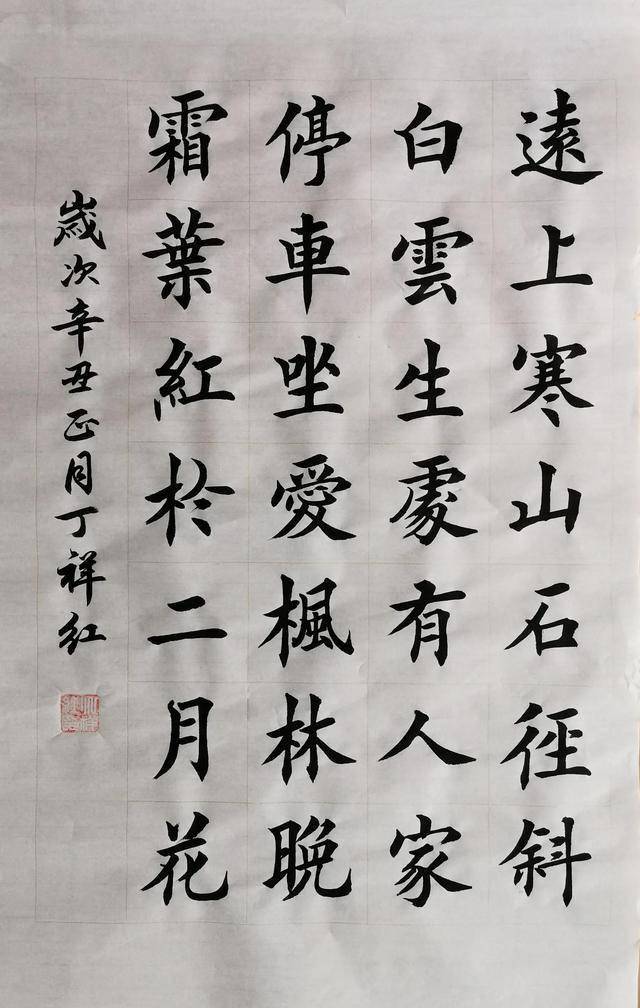 遠上寒山石徑斜
白雲生處有人家
停車坐愛楓林晚
霜葉紅於二月花
歲次辛丑正月丁祥红